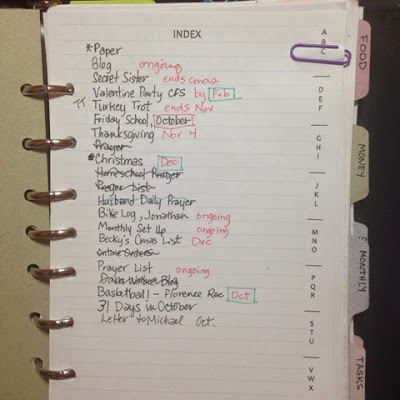 INDEX
*Paper
Blog ongoing
Secret Sister ends cmas
Valentine Party CFS by Feb
TT Turkey Trot ends Nov
Friday School, October
Thanksgiving Nov 4
Prayer
*Christmas Dec
Homeschool Prayer
Prayer List
Husband Daily Prayer
Bike Log, Jonathan ongoing
Monthly Set Up ongoing
Becky's Cmas List Dec
Online Sisters
Prayer List ongoing
Blog
Basketball - Florence Rec Oct
31 Days in October
Letter to Michael Oct.
A
B
C
DEF
GHI
JKL
MNO
PQR
STU
VWX
FOOD
MONEY
MONTHLY
TASKS